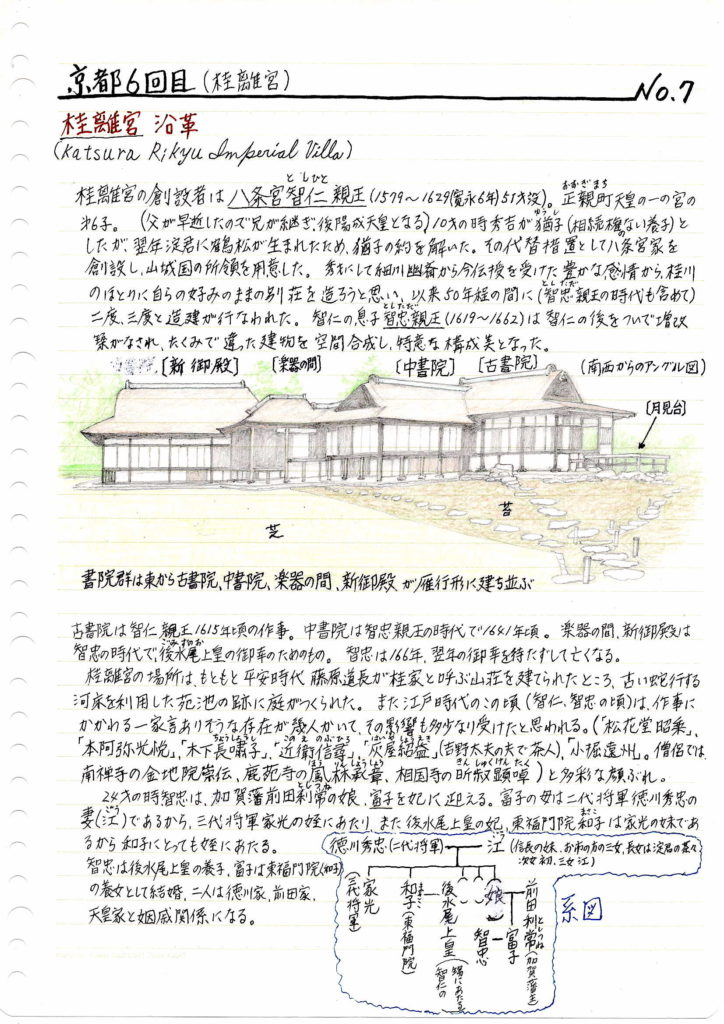 京都6回目(桂離宮)
No.7
桂離宮 沿革
(Katsura Rikyu Imperial Villa)
桂離宮の創設者は 八条宮智仁親王(1579~1629(寛永6年)51才没)。正親町天皇の一の宮の
第6子。(父が早逝したので兄が継ぎ、後陽成天皇となる) 10才の時秀吉が猶子(相続権のない養子)と
したが、翌年淀君に鶴松が生まれたため、猶子の約を解いた。その代替措置として八条宮家を
創設し、山城国の所領を用意した。秀才にして細川幽斎から今伝授を受けた豊かな感情から、桂川
のほとりに自らの好みのままの別荘を造ろうと思い、以来50年程の間に(智忠親王の時代も含めて)
二度、三度と造建が行なわれた。智仁の息子智忠親王(1619~1662)は智仁の後をついで増改
築がなされ、たくみで違った建物を空間合成し、特意な構成美となった。
[新御殿] [楽器の間] [中書院] [古書院] (南西からのアングル図)
[月見台]
苔
芝
書院群は東から古書院、中書院、楽器の間、新御殿 が雁行形に建ち並ぶ
古書院は智仁親王1615年頃の作事。中書院は智忠親王の時代で1641年頃。楽器の間、新御殿は
智忠の時代で、後水尾上皇の御幸のためのもの。智忠は166年、翌年の御幸を待たずして亡くなる。
桂離宮の場所は、もともと平安時代 藤原道長が桂家と呼ぶ山荘を建てられたところ、古い蛇行する
河床を利用した苑池の跡に庭がつくられた。また江戸時代のこの頃(智仁、智忠の頃)は、作事に
かかわる一家言ありそうな存在が幾人かいて、その影響も多少なり受けたと思われる。(「松花堂昭乗」、
「本阿弥光悦」、「木下長嘯子」、「近衛信尋」、「灰屋紹益」(吉野太夫の夫で茶人)、「小堀遠州」。僧侶では
南禅寺の金地院崇伝、鹿苑寺の鳳林承章、相国寺の昕叔顕晫)と多彩な顔ぶれ。
24才の時智忠は、加賀藩前田利常の娘、富子を妃に迎える。富子の母は二代将軍徳川秀忠の
妻(江)であるから、三代将軍家光の姪にあたり、また後水尾上皇の妃、東福門院和子は家光の妹であ
るから和子にとっても姪にあたる。
智忠は後水尾上皇の養子、富子は東福門院(和子)
の養女として結婚、二人は徳川家、前田家、
天皇家と姻戚関係になる。
徳川秀忠(二代将軍) 江(信長の妹、お市の方の三女、長女は淀君の茶々
次女 初、三女 江)
家光(三代将軍)
和子(東福門院)
後水尾上皇(智仁の甥にあたる)
娘
前田利常(加賀藩主)
智忠
富子
系図